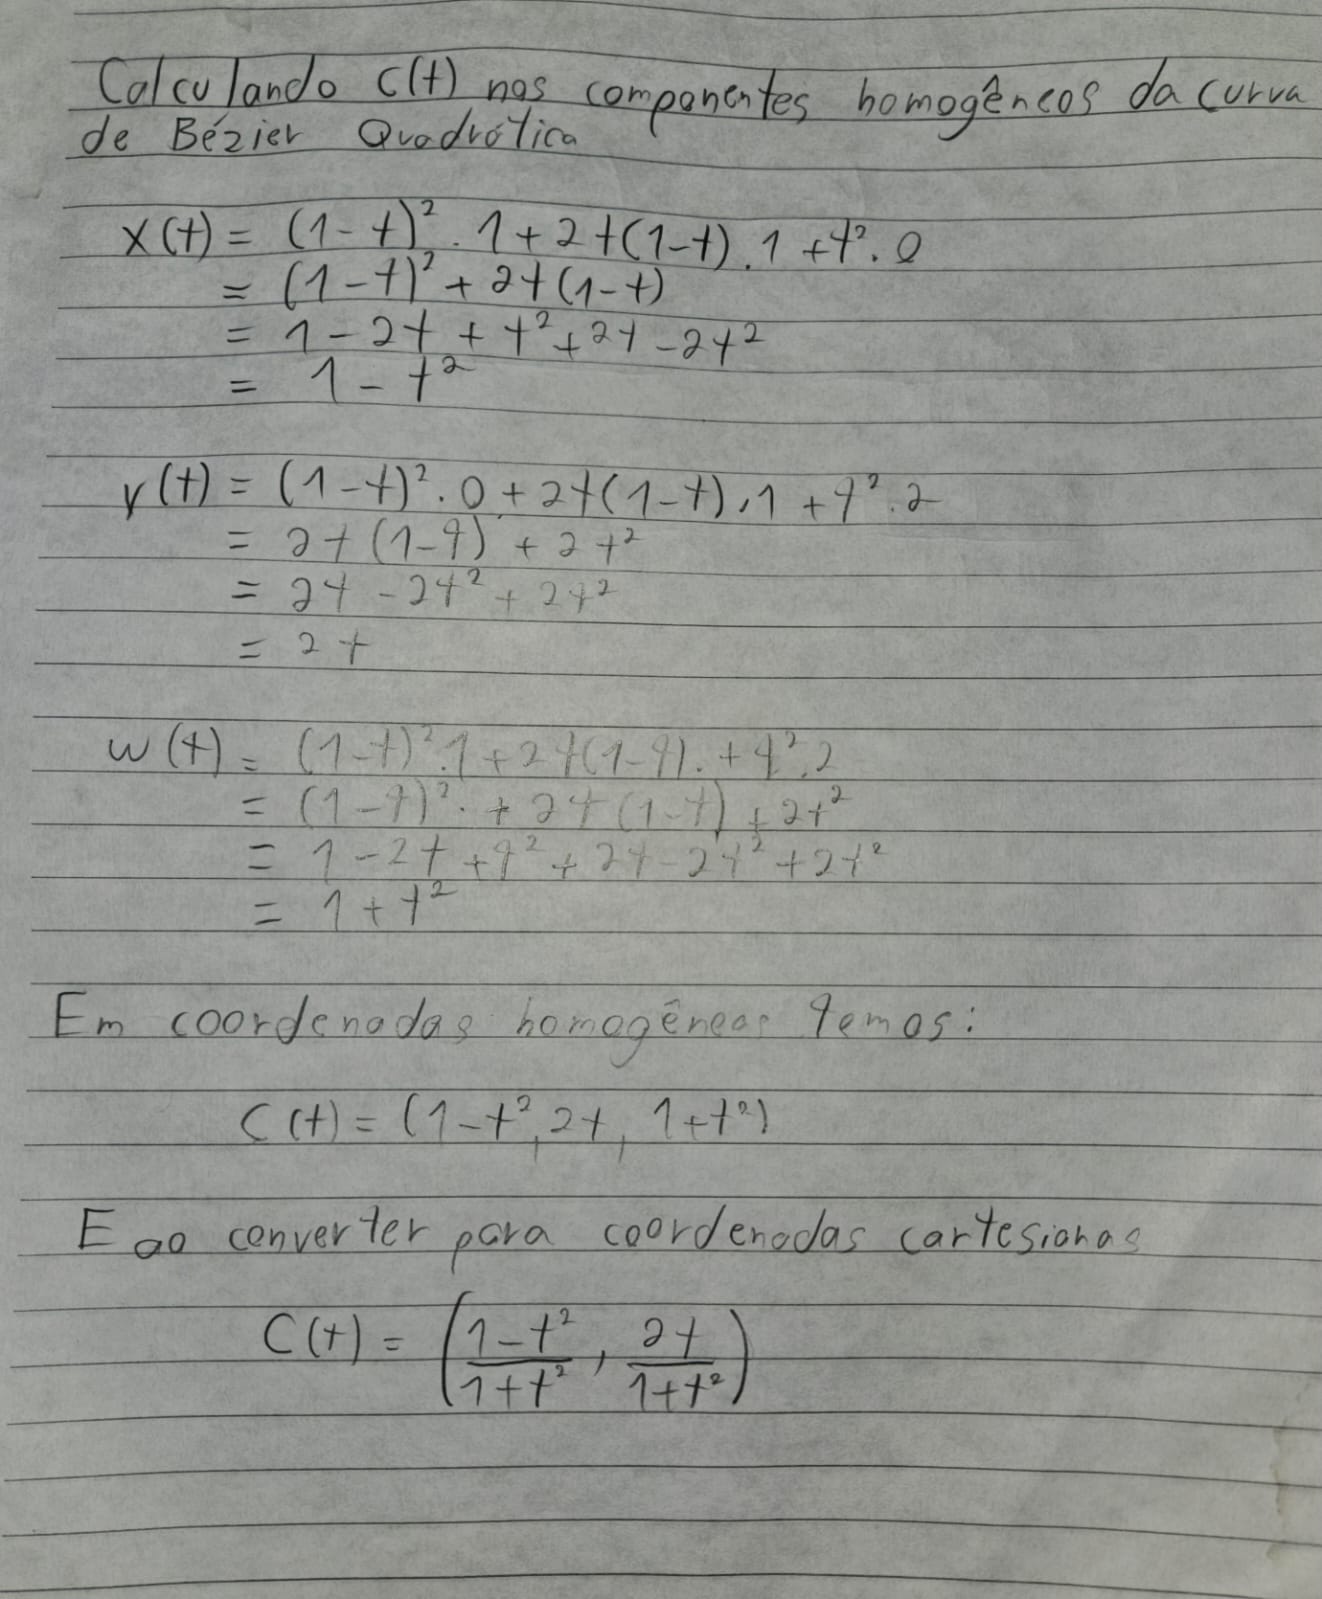 Calculando C(t) nas componentes homogêneas da curva
de Bézier Quadrática
X(t) = (1-t)² . 1 + 2t(1-t) . 1 + t² . 0
= (1-t)² + 2t(1-t)
= 1 - 2t + t² + 2t - 2t²
= 1 - t²
Y(t) = (1-t)² . 0 + 2t(1-t) . 1 + t² . 2
= 2t(1-t) + 2t²
= 2t - 2t² + 2t²
= 2t
W(t) = (1-t)² . 1 + 2t(1-t) . + t² . 2
= (1-t)² . + 2t(1-t) + 2t²
= 1 - 2t + t² + 2t - 2t² + 2t²
= 1 + t²
Em coordenadas homogêneas temos:
C(t) = (1-t², 2t, 1+t²)
E ao converter para coordenadas cartesianas
C(t) = ((1-t²)/(1+t²), 2t/(1+t²))